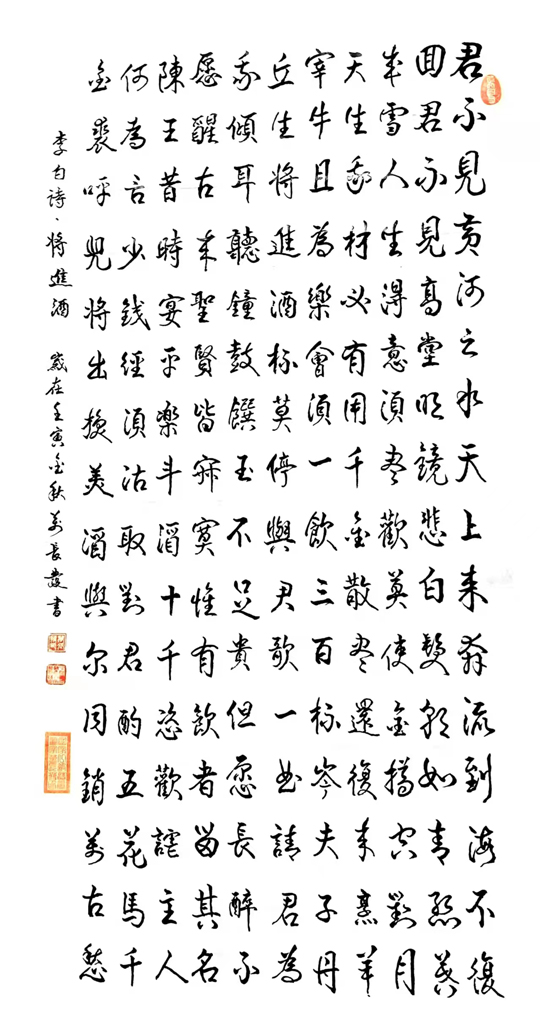 君不見黃河之水天上来奔流到海不復
回君不見高堂明鏡悲白髮朝如青絲暮
成雪人生得意須盡歡莫使金樽空對月
天生我材必有用千金散盡還復来烹羊
宰牛且為樂會須一飲三百杯岑夫子丹
丘生將進酒杯莫停與君歌一曲請君為
我傾耳聽鐘鼓饌玉不足貴但愿長醉不
愿醒古来聖賢皆寂寞惟有飲者留其名
陳王昔時宴平樂斗酒十千恣歡謔主人
何為言少錢經須沽取對君酌五花馬千
金裘呼兒將出換美酒與尔同銷萬古愁
李白詩、將進酒 歲在壬寅金秋萬長發書